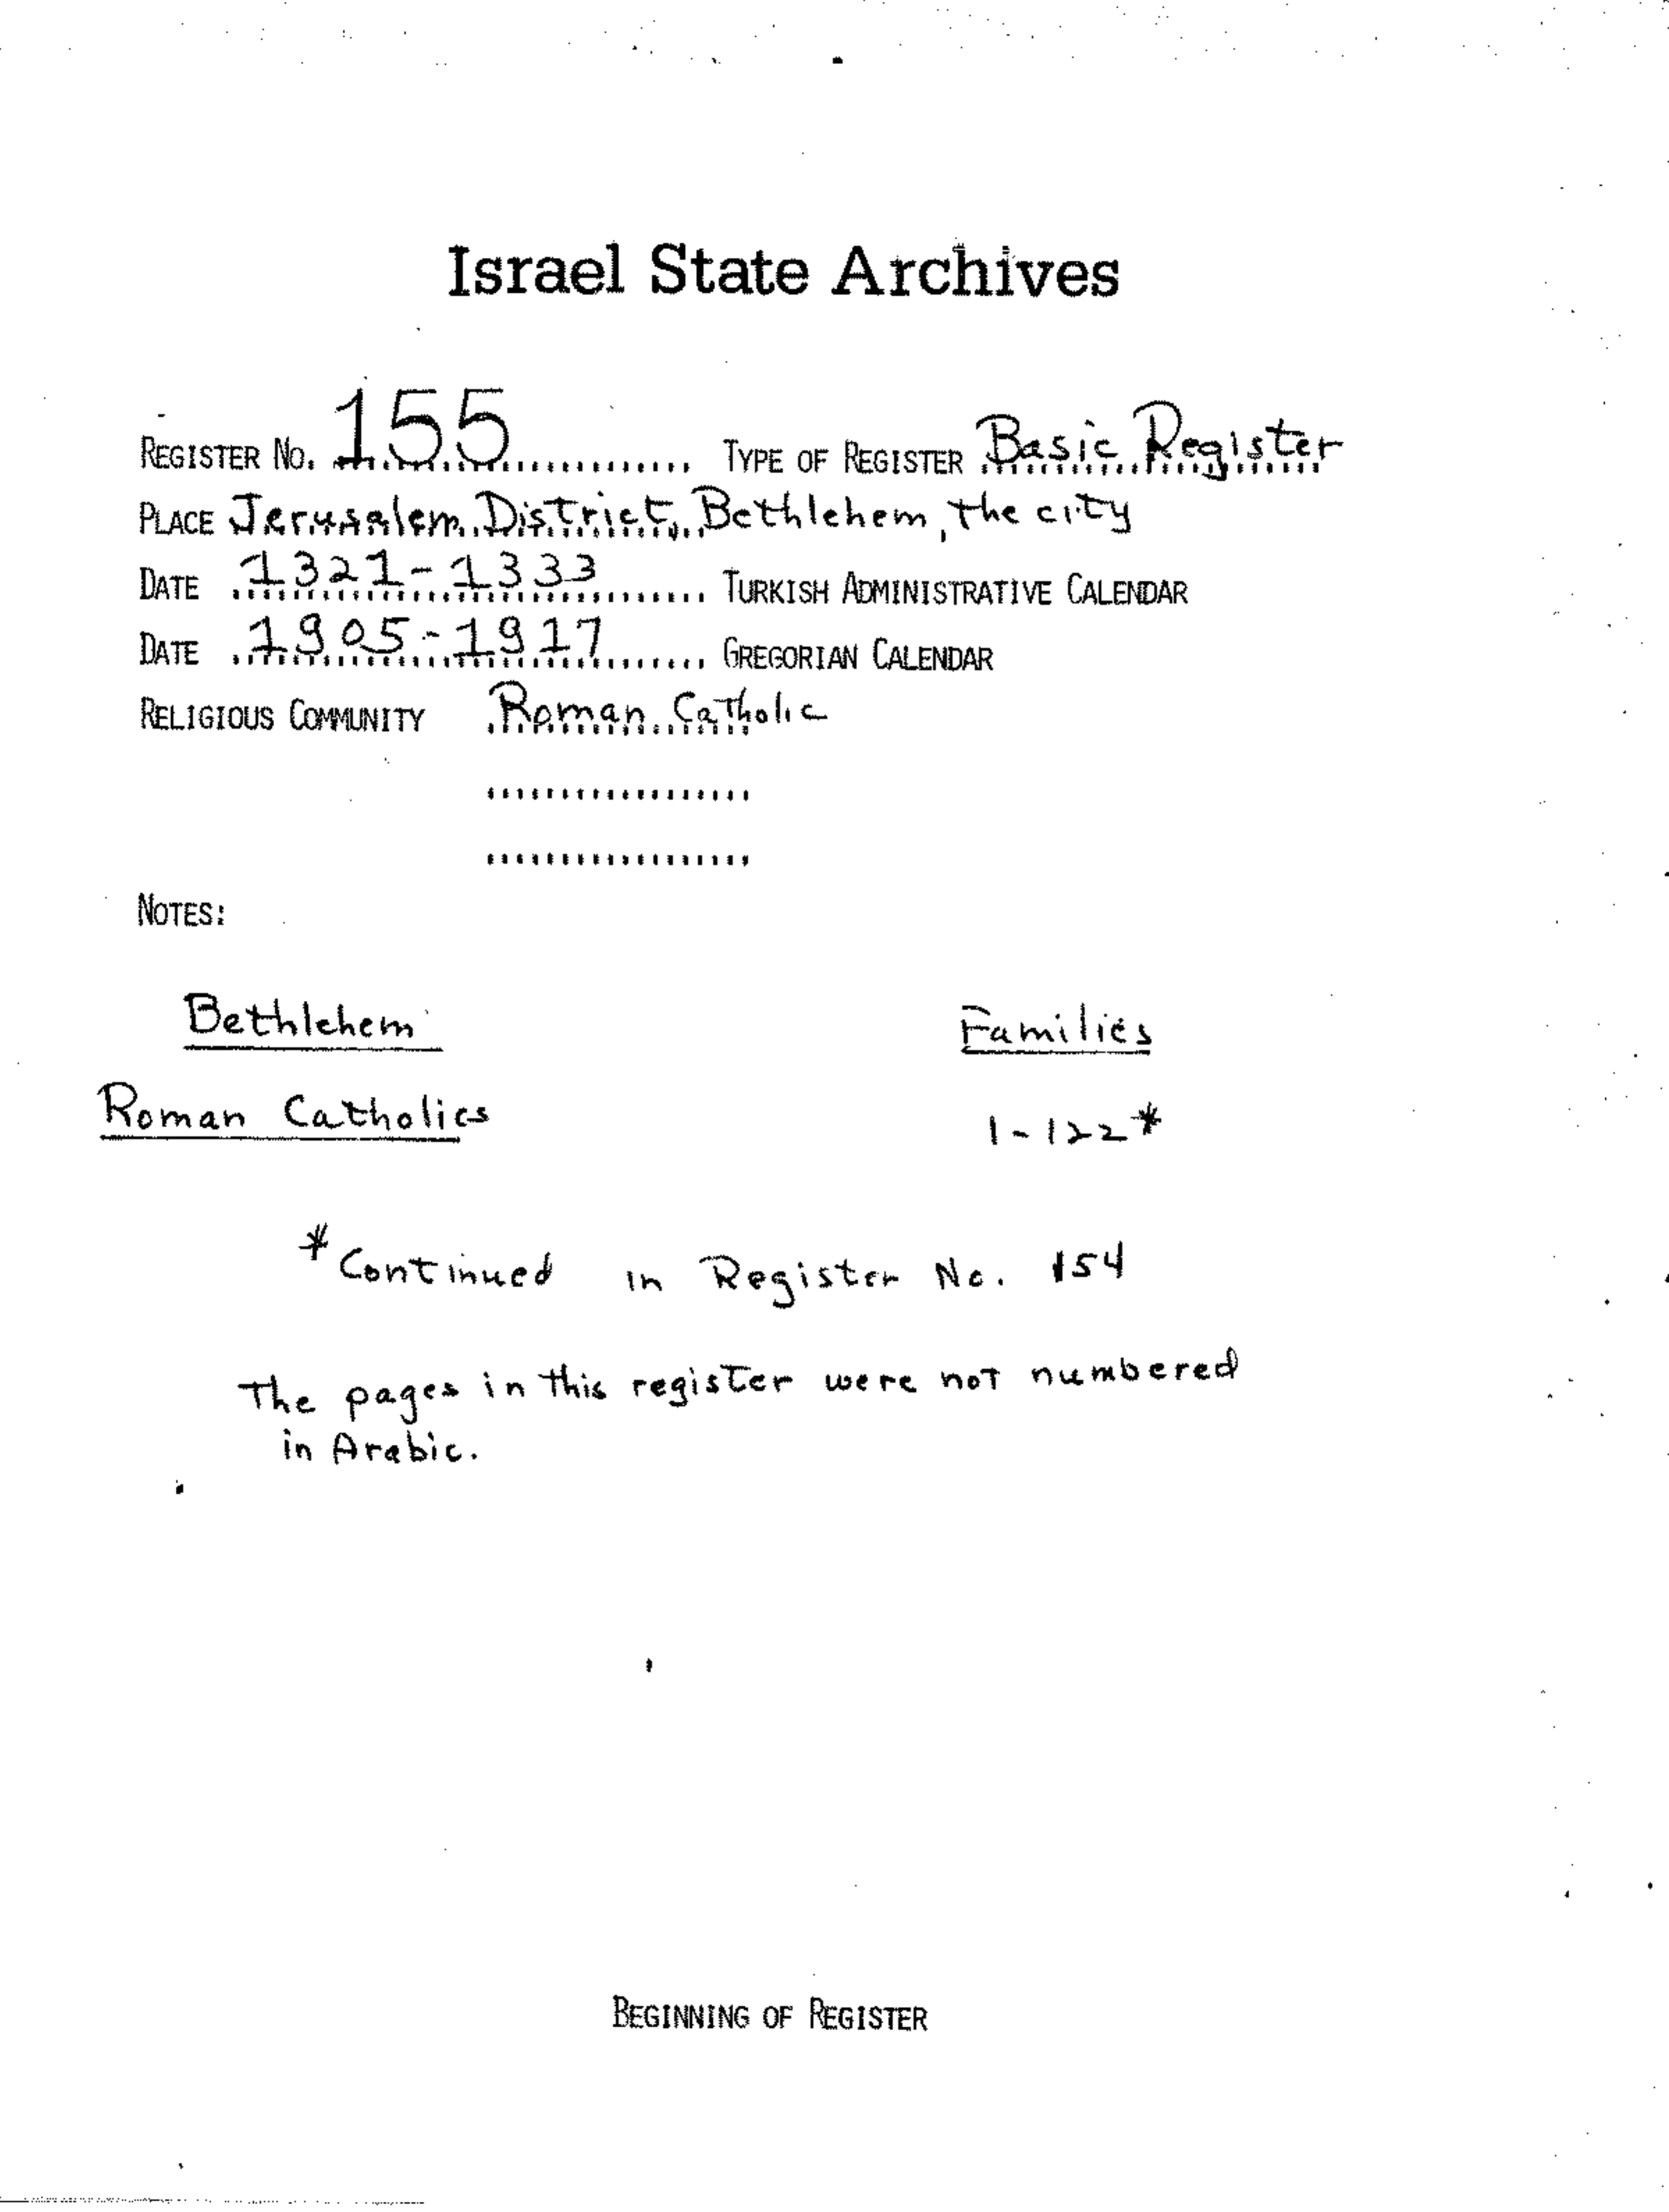 Israel State Archives
REGISTER NO. 155 TYPE OF REGISTER Basic Register
PLACE Jerusalem District, Bethlehem, the city
DATE 1321-1333 TURKISH ADMINISTRATIVE CALENDAR
DATE 1905-1917 GREGORIAN CALENDAR
RELIGIOUS COMMUNITY Roman Catholic
NOTES:
Bethlehem Families
Roman Catholics 1-122*
*Continued in Register No. 154
The pages in this register were not numbered
in Arabic.
BEGINNING OF REGISTER